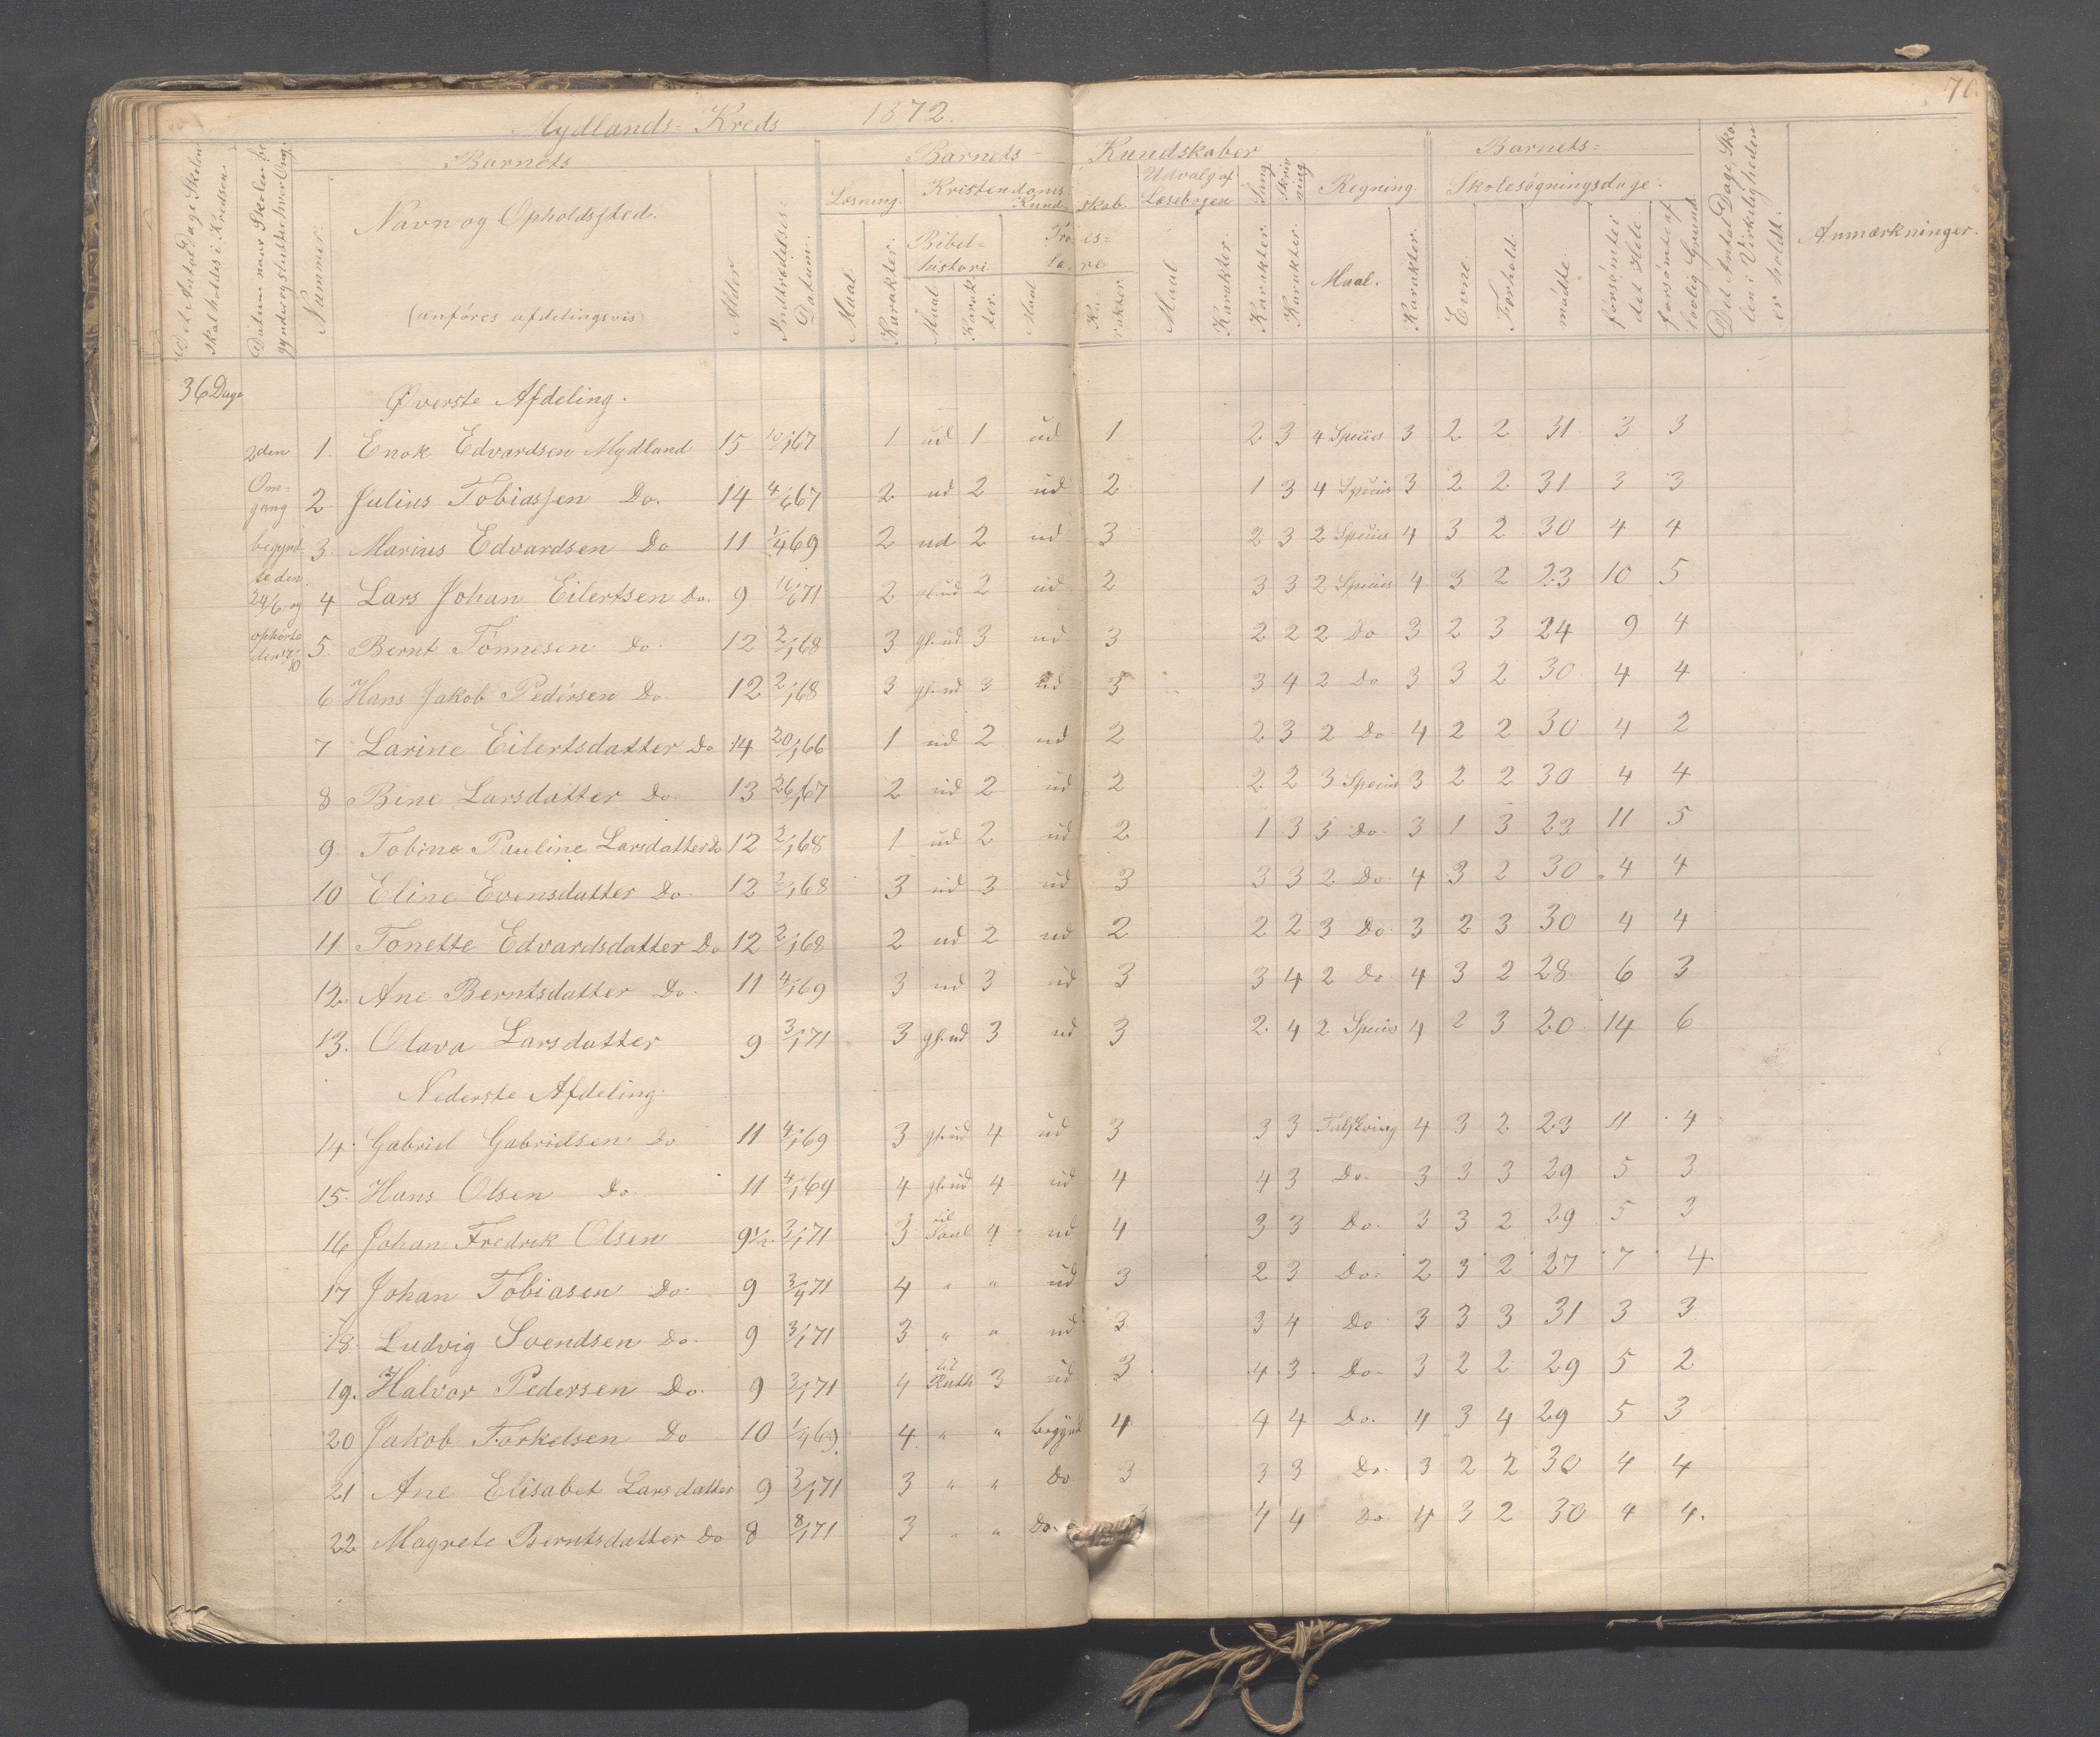 70.
Mydlands-Kreds 1872.
Det Antal Dage Skolen skal holdes i Kredsen.
Datum naar Skolen begynder og slutter hver Omg.
Nummer.
Barnets
Navn og Opholdssted.
(anföres afdelingsvis)
Alder
Indtrædelses-Datum.
Barnets- Kundskaber
Læsning. Maal Karakter.
Kristendoms Kundskab.
Bibelhistorie Maal Karakter.
Troeslære Maal Karakter
Udvalg af Læsebogen Maal Karakter.
Sang Karakter.
Skrivning Karakter.
Regning. Maal. Karakter.
Barnets-
Skolesøgningsdage.
Evne. Forhold. mødte forsömte i det Hele forsömte af lovlig Grund.
Det Antal Dage Skolen i Virkeligheden er holdt.
Anmærkninger.
36 Dage
2den Omgang begyndte den 24/6 og ophørte den 17/10
Øverste Afdeling.
1. Enok Edvardsen Mydland 15 10/1 67 1 ud 1 ud 1 2 3 4 Species 3 2 2 31 3 3
2 Julius Tobiassen Do. 14 4/6 67 2 ud 2 ud 2 1 3 4 Species 3 2 2 31 3 3
3. Marius Edvardsen Do 11 1/4 69 2 ud 2 ud 3 2 3 2 Species 4 3 2 30 4 4
4 Lars Johan Eilertsen Do. 9 16/6 71 2 gl. ud 2 ud 2 3 3 2 Species 4 3 2 23 10 5
5. Bernt Tönnesen Do. 12 2/1 68 3 gl. ud 3 ud 3 2 2 2 Do 3 2 3 24 9 4
6 Hans Jakob Pedersen Do 12 2/1 68 3 gl. ud 3 ud 3 3 4 2 Do 3 3 2 30 4 4
7 Larine Eilertsdatter Do 14 20/1 66 1 ud 2 ud 2 2 3 2 Do 4 2 2 30 4 2
8 Bine Larsdatter Do. 13 26/1 67 2 ud 2 ud 2 2 2 3 Species 3 2 2 30 4 4
9. Tobine Pauline Larsdatter Do 12 2/1 68 1 ud 2 ud 2 1 3 3 Do. 3 1 3 23 11 5
10 Eline Evensdatter Do. 12 2/1 68 3 ud 3 ud 3 3 3 2 Do 4 3 2 30 4 4
11. Tonette Edvardsdatter Do 12 2/1 68 2 ud 2 ud 2 2 2 3 Do. 3 2 3 30 4 4
12. Ane Berntsdatter Do. 11 4/1 69 3 ud 3 ud 3 3 4 2 Do 4 3 2 28 6 3
13. Olava Larsdatter 9 3/1 71 3 gl. ud 3 ud 3 2 4 2 Species 4 2 3 20 14 6
Nederste Afdeling.
14. Gabriel Gabrielsen Do 11 4/1 69 3 gl. ud 4 ud 3 3 3 Talskrivng 4 3 2 23 11 4
15. Hans Olsen Do. 11 4/1 69 4 gl. ud 4 ud 4 4 3 Do. 3 3 3 29 5 3
16 Johan Fredrik Olsen 9 1/2 3/1 71 3 til Saul 4 ud 4 3 3 Do. 3 3 2 29 5 3
17 Johan Tobiasen Do. 9 3/4 71 4 " " ud 3 2 3 Do. 2 3 2 27 7 4
18. Ludvig Svendsen Do. 9 3/1 71 3 " " ud 3 3 4 Do 3 3 3 31 3 3
19. Halvor Pedersen Do. 9 3/1 71 4 til Ruth 3 ud 3 4 3 Do. 3 2 2 29 5 2
20 Jakob Torkelsen Do 10 1/4 69 4 " " begynd 4 4 4 Do. 4 3 4 29 5 3
21 Ane Elisabet Larsdatter 9 3/1 71 3 " " Do 3 3 3 Do. 3 2 2 30 4 4
22 Magrete Berntsdatter Do 8 8/1 71 3 " " Do. 3 4 4 Do 4 3 2 30 4 4.